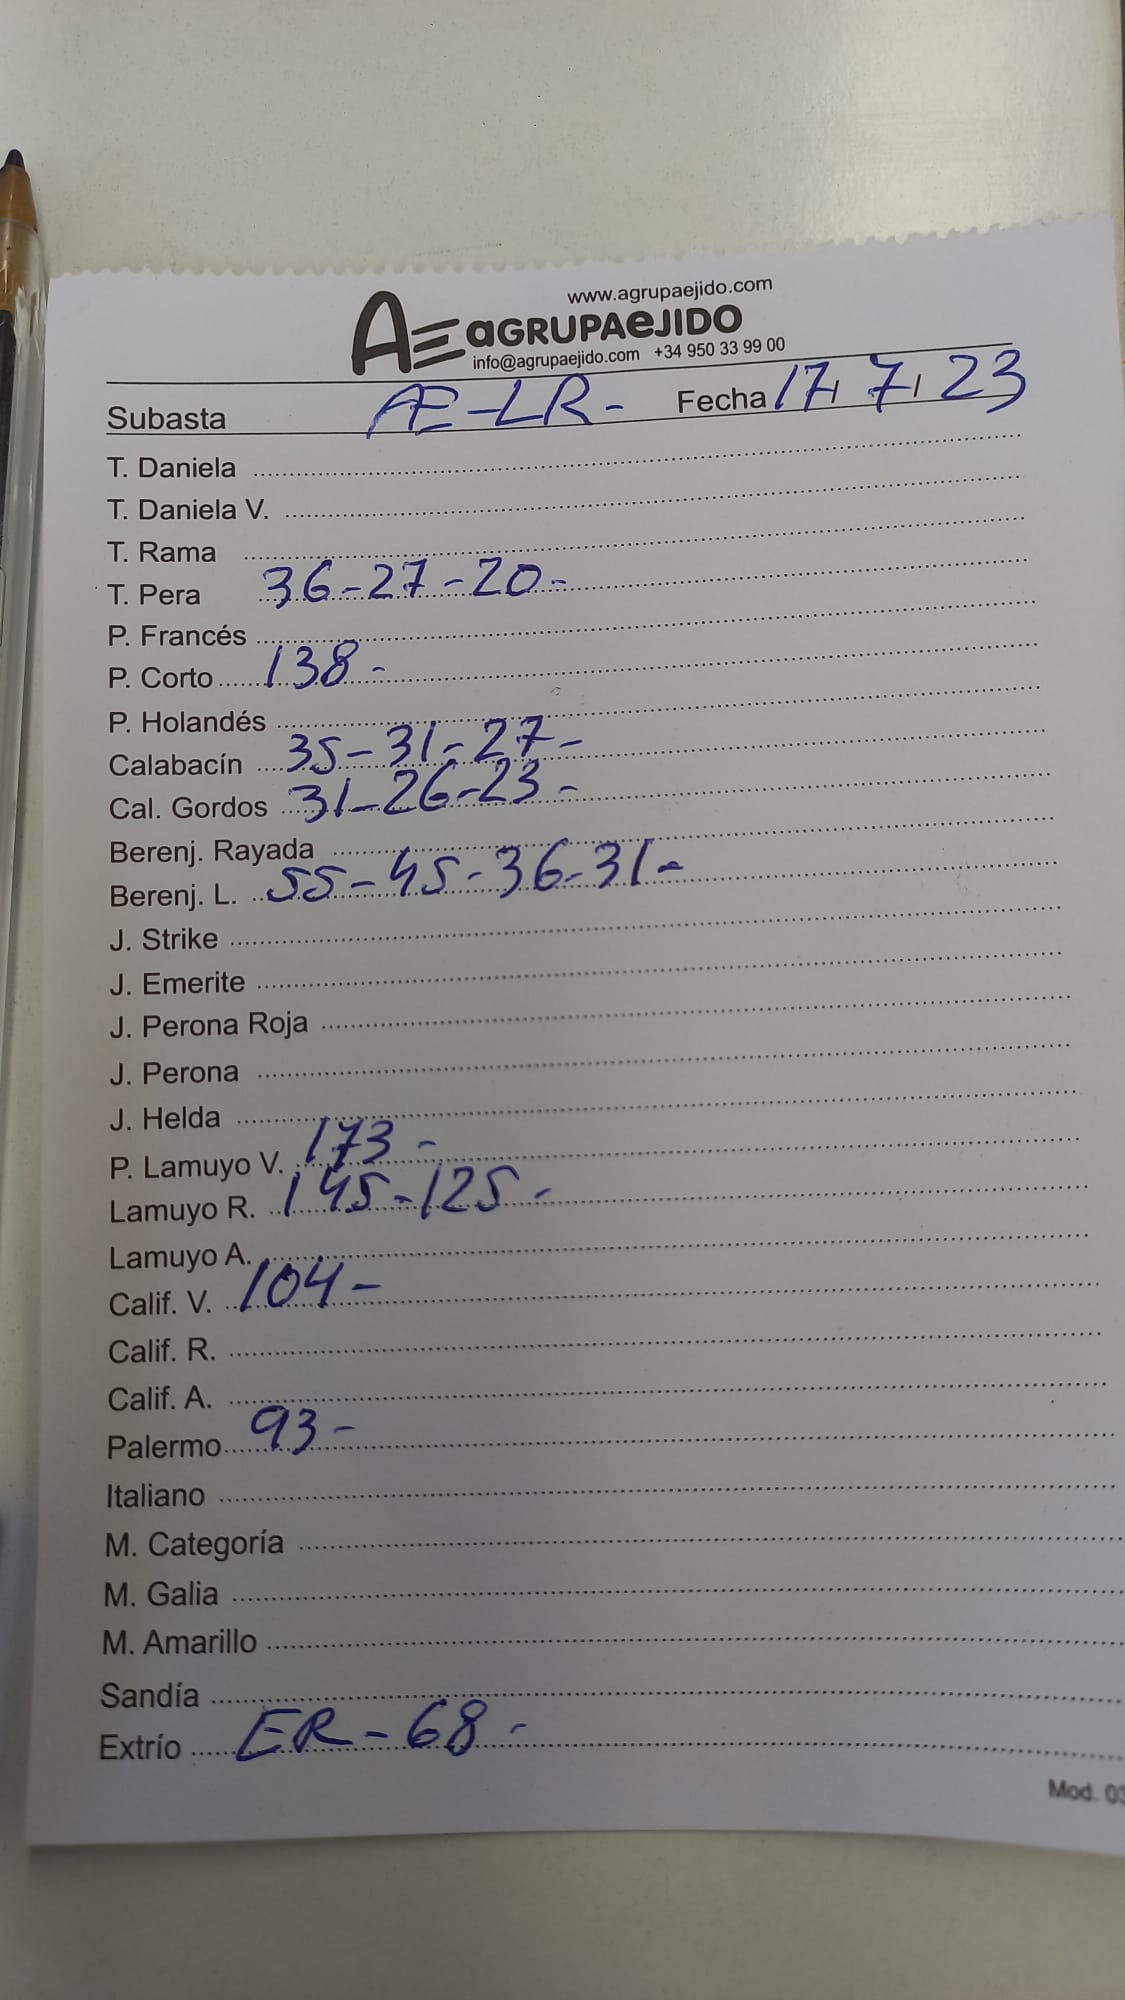 www.agrupaejido.com
AE aGRUPAeJIDO
info@agrupaejido.com +34 950 33 99 00
Subasta AE-LR- Fecha 17/7/23
T. Daniela
T. Daniela V.
T. Rama
T. Pera 36-27-20-
P. Francés
P. Corto 138-
P. Holandés
Calabacín 35-31-27-
Cal. Gordos 31-26-23-
Berenj. Rayada
Berenj. L. 55-45-36-31-
J. Strike
J. Emerite
J. Perona Roja
J. Perona
J. Helda
P. Lamuyo V. 173-
Lamuyo R. 145-125-
Lamuyo A.
Calif. V. 104-
Calif. R.
Calif. A.
Palermo 93-
Italiano
M. Categoría
M. Galia
M. Amarillo
Sandía
Extrío ER-68-
Mod. 03